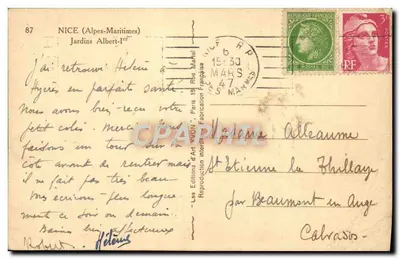 87 NICE (Alpes-Maritimes)
Jardins Albert-Ier
J'ai retrouvé Hélène
Hyères en parfaite santé.
Nous avons bien reçu votre
petit colis. Merci
faisons un tour
côté avant de rentrer mais
il ne fait pas très beau
Nous écrirons plus longue
ment ce soir ou demain.
Bons baisers affectueux
Robert Hélène
"Les Editions d'Art "YVON" Paris 15 Rue Martel
Reproduction interdite Fabrication Française
NICE R.P.
6
15H30
MARS
47
ALPES MARMES
3F
RF
Cartepostale
Madame Alleaume
St Etienne la Thillaye
par Beaumont en Auge
Calvados